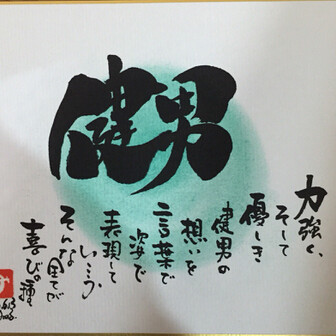 健男
力強く、
そして
優しき
健男の
想いを
言葉で
姿で
表現して
いこう
そんな
全てが
喜びの種